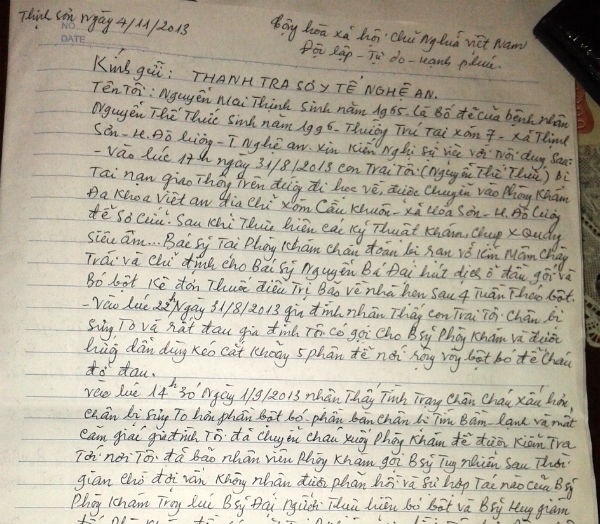 Thịnh Sơn Ngày 4/11/2013
Cộng hòa xã hội chủ Nghĩa việt Nam
NO.
DATE
Độc lập - Tự do - Hạnh phúc.
Kính gửi: THANH TRA SỞ Y TẾ NGHỆ AN.
Tên Tôi: Nguyễn Mai Thịnh Sinh năm 1965. Là Bố đẻ của bệnh nhân
Nguyễn Thế Thức Sinh năm 1996. Thường Trú Tại xóm 7 - xã Thịnh
Sơn - H. Đô lương - T Nghệ an. xin Kiến Nghị Sự việc với Nội dung Sau:
- Vào lúc 17h ngày 31/8/2013 con Trai Tôi (Nguyễn Thế Thức) bị
Tai nạn giao Thông Trên đường đi học về, được chuyển vào Phòng Khám
Đa Khoa Việt an địa chỉ xóm Cầu Khuôn - xã Hòa Sơn - H. Đô Lương
để Sơ cứu. Sau khi Thực hiện các Kỹ Thuật Khám. Chụp X Quang
Siêu âm... Bác Sỹ Tại Phòng Khám chẩn đoán bị rạn vỡ Kín Mâm chày
Trái và Chỉ định cho Bác Sỹ Nguyễn Bá Đại hút dịch ở đầu gối và
Bó bột Kê đơn Thuốc điều Trị Bảo về nhà hẹn Sau 4 Tuần Tháo bột.
- Vào lúc 22h Ngày 31/8/2013 gia đình nhận Thấy con Trai Tôi Chân bị
Sưng To và rất đau gia đình Tôi có gọi cho BSỹ Phòng Khám và được
hướng dẫn dùng Kéo cắt Khoảng 5 phân để nới rộng vòng bột bó để cháu
đỡ đau.
Vào lúc 14h 30 Ngày 1/9/2013 nhận Thấy Tình Trạng Chân Cháu Xấu hơn
chân bị Sưng To hơn phần bột bó. phần bàn chân bị Tím Bầm - lạnh và mất
cảm giác gia đình Tôi đã chuyển cháu xuống Phòng Khám để được Kiểm Tra
Tới nơi Tôi đã báo nhân viên Phòng Khám gọi BSỹ Tuy nhiên Sau Thời
gian chờ đợi vẫn Không nhận được phản hồi và Sự hợp Tác nào của BSỹ
Phòng Khám Trong lúc BSỹ Đại Người Thực hiện bó bột và BSỹ Huy giám